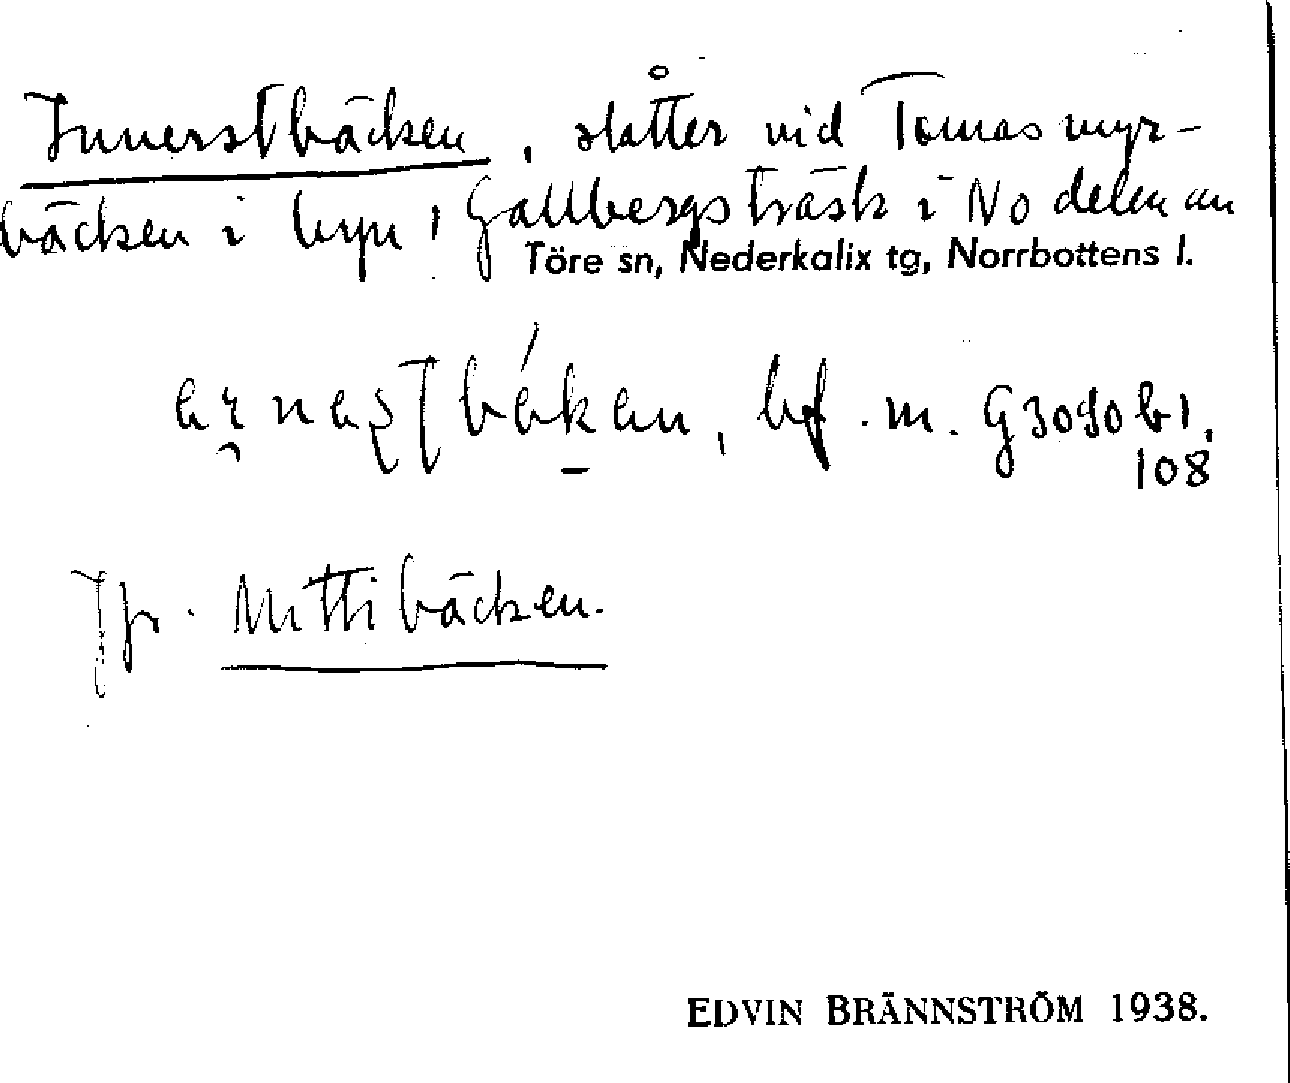 Innerstbäcken, slåtter vid Tomasmyr-
bäcken i byn Gallbergsträsk i No delen av
Töre sn, Nederkalix tg, Norrbottens l.
bf. m. G3090b1,
108
Jfr. Mittibäcken.
EDVIN BRÄNNSTRÖM 1938.